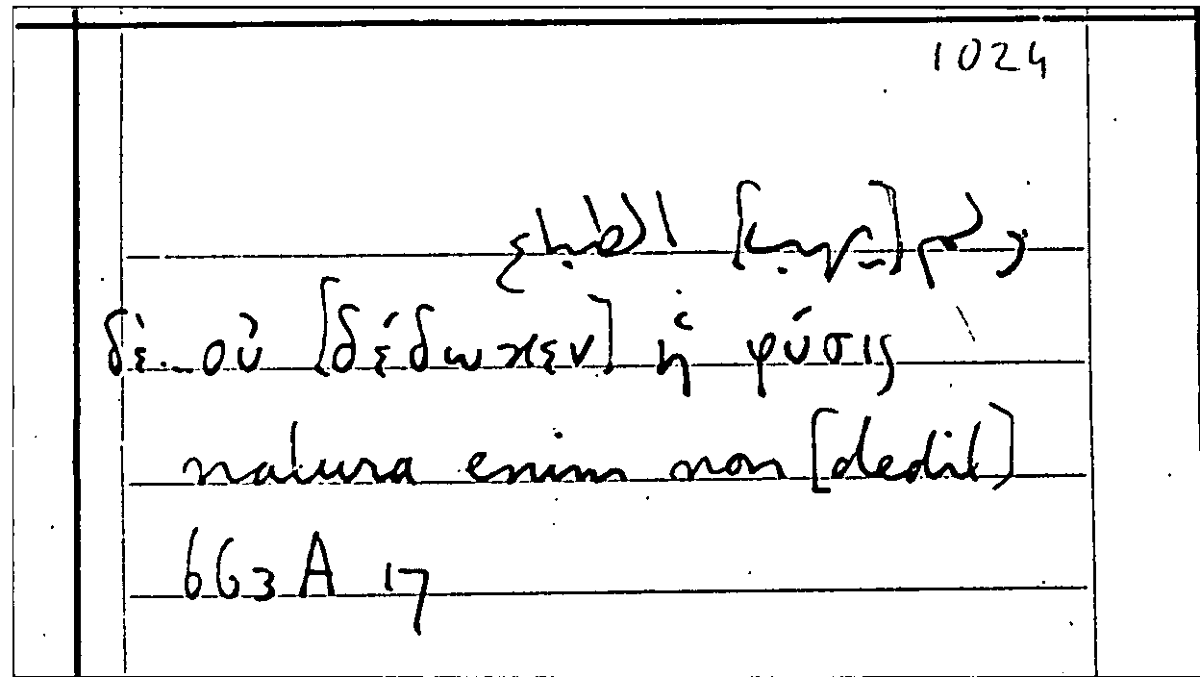 1024
ولم [يهب] الطباع
δὲ.. οὐ [δέδωκεν] ἡ φύσις
natura enim non [dedit]
663 A 17